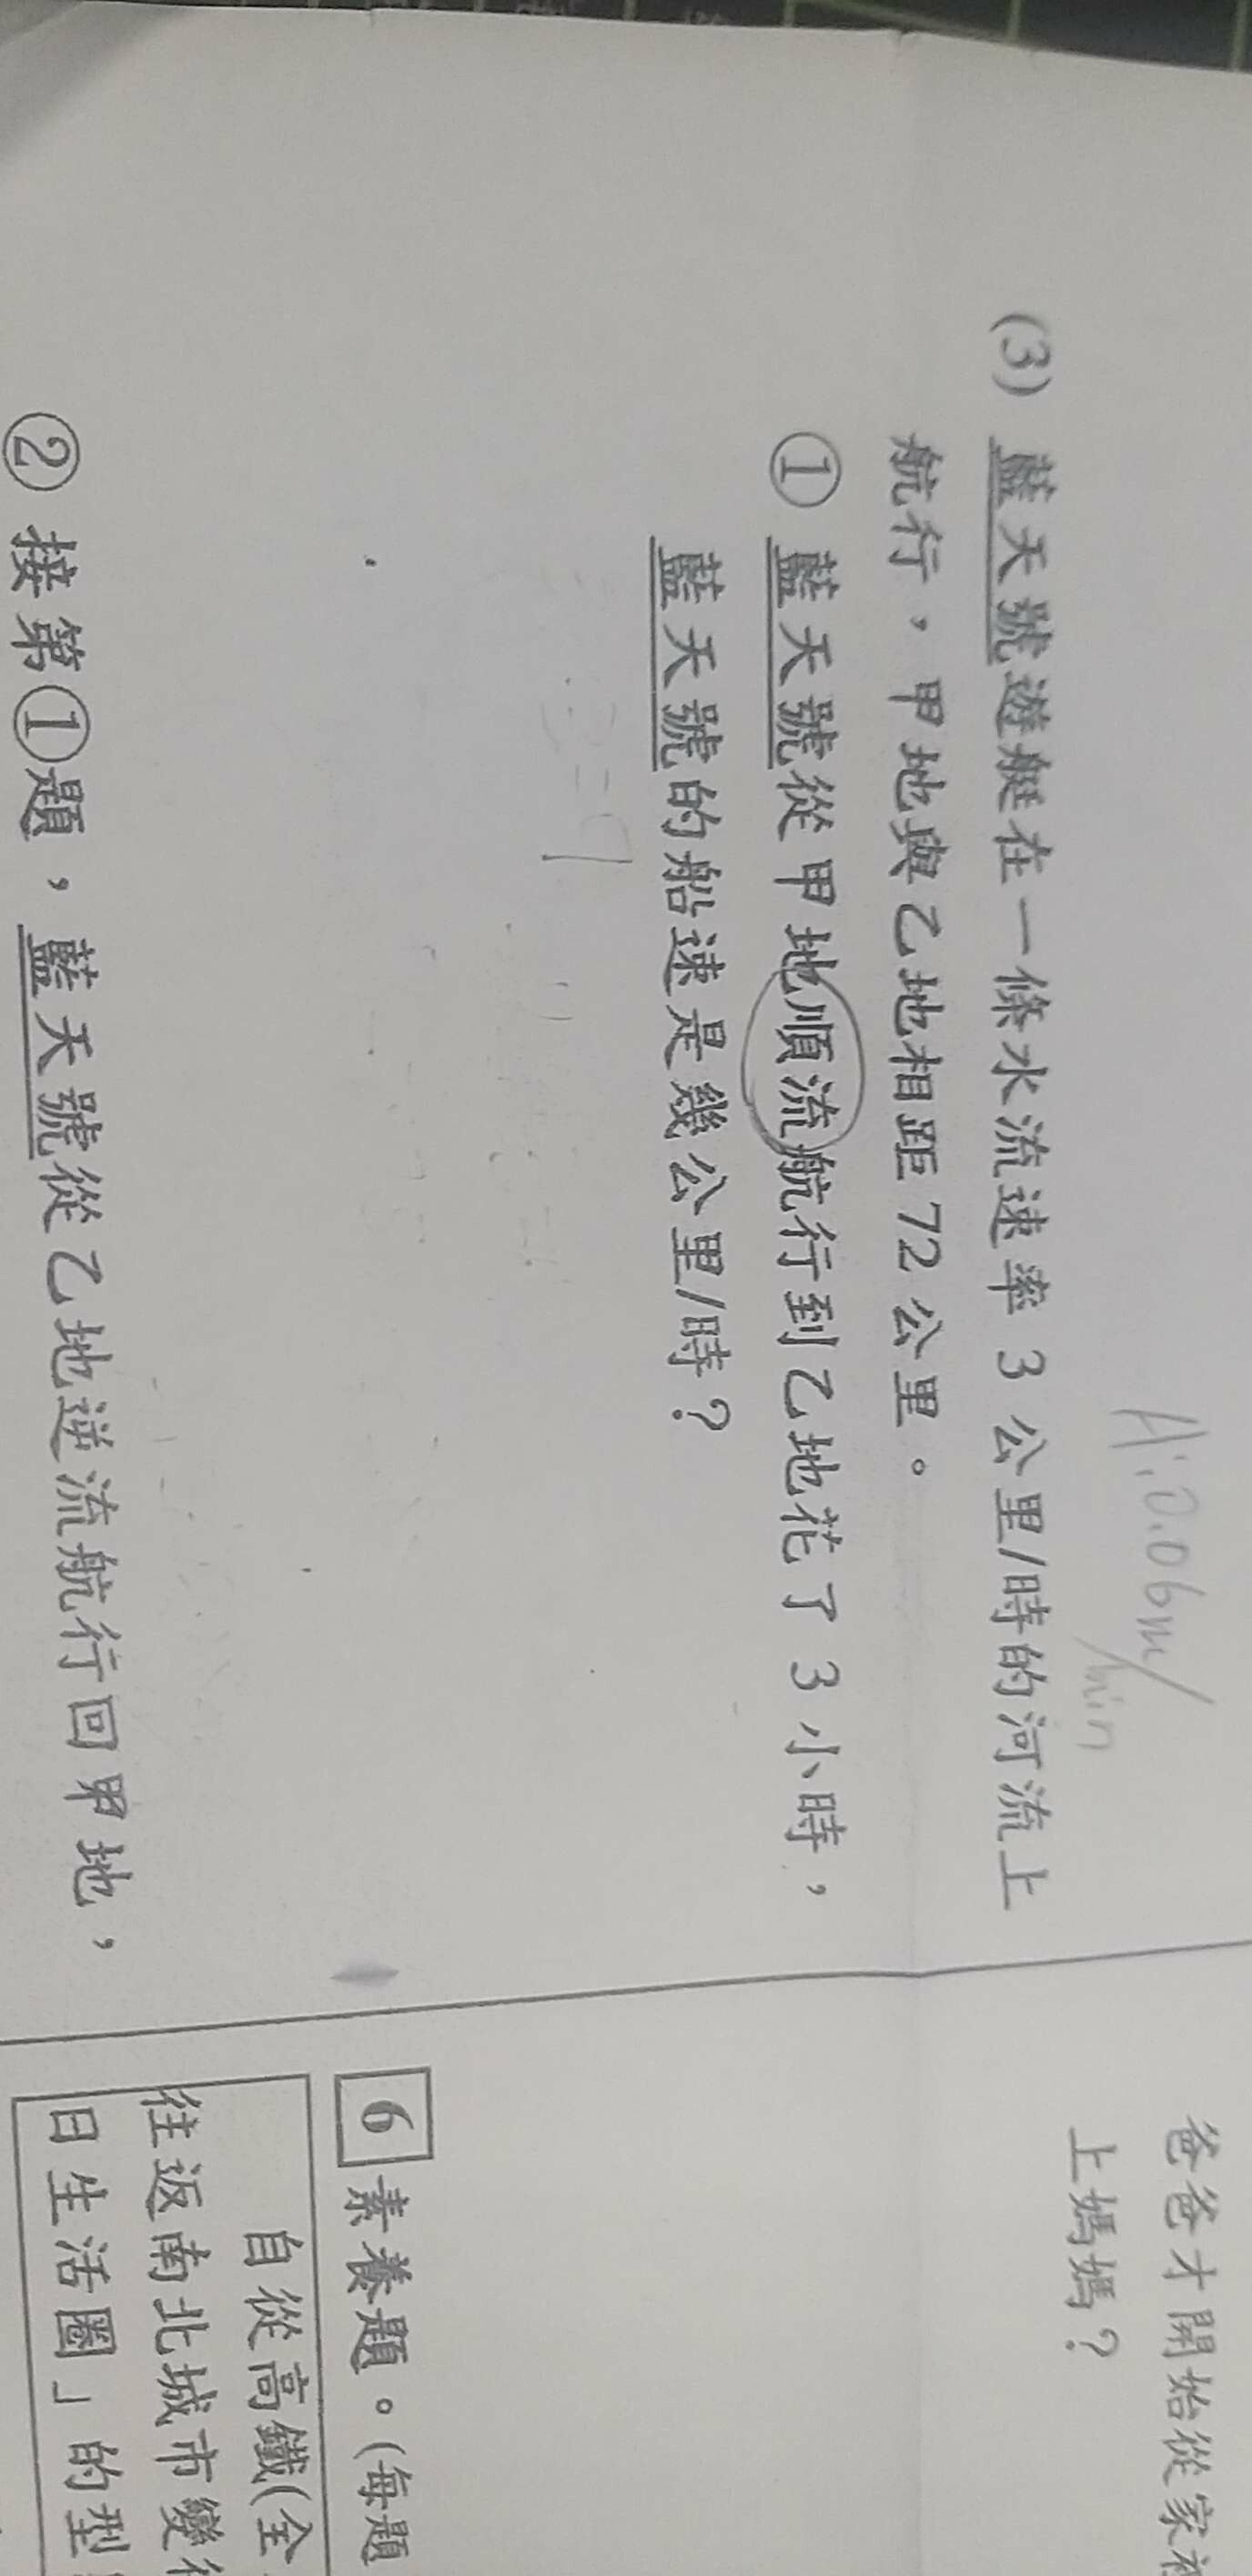 A:0.06m/min
(3) 藍天號遊艇在一條水流速率 3 公里/時的河流上
航行，甲地與乙地相距 72 公里。
① 藍天號從甲地順流航行到乙地花了 3 小時，
藍天號的船速是幾公里/時？
② 接第①題，藍天號從乙地逆流航行回甲地，
爸爸才開始從家裡
上媽媽？
6 素養題。(每題
自從高鐵(全
往返南北城市變得
日生活圈」的型